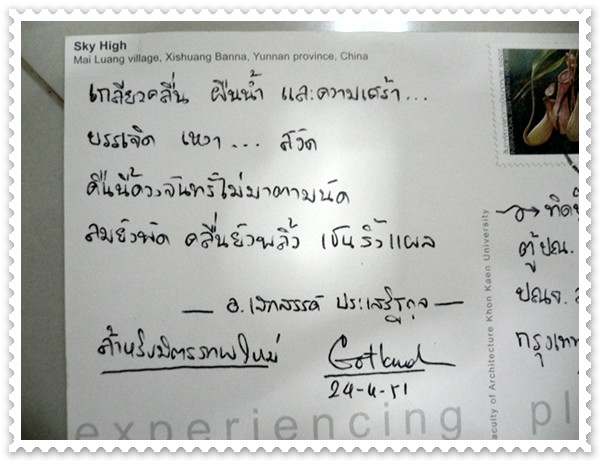 Sky High
Mai Luang village, Xishuang Banna, Yunnan province, China
เกลียวคลื่น ผืนน้ำ และความเศร้า...
บรรเจิด เหงา... สงัด
คืนนี้ดวงจันทร์ไม่มาตามนัด
ลมยังพัด คลื่นยังพลิ้ว เช่นริ้วแผล
— อ.เสกสรรค์ ประเสริฐกุล —
สำหรับมิตรภาพใหม่
Gotland
24-4-51
ตู้ปณ.
ปณจ.
กรุงเทพ
aculty of Architecture Khon Kaen University
experiencing pl